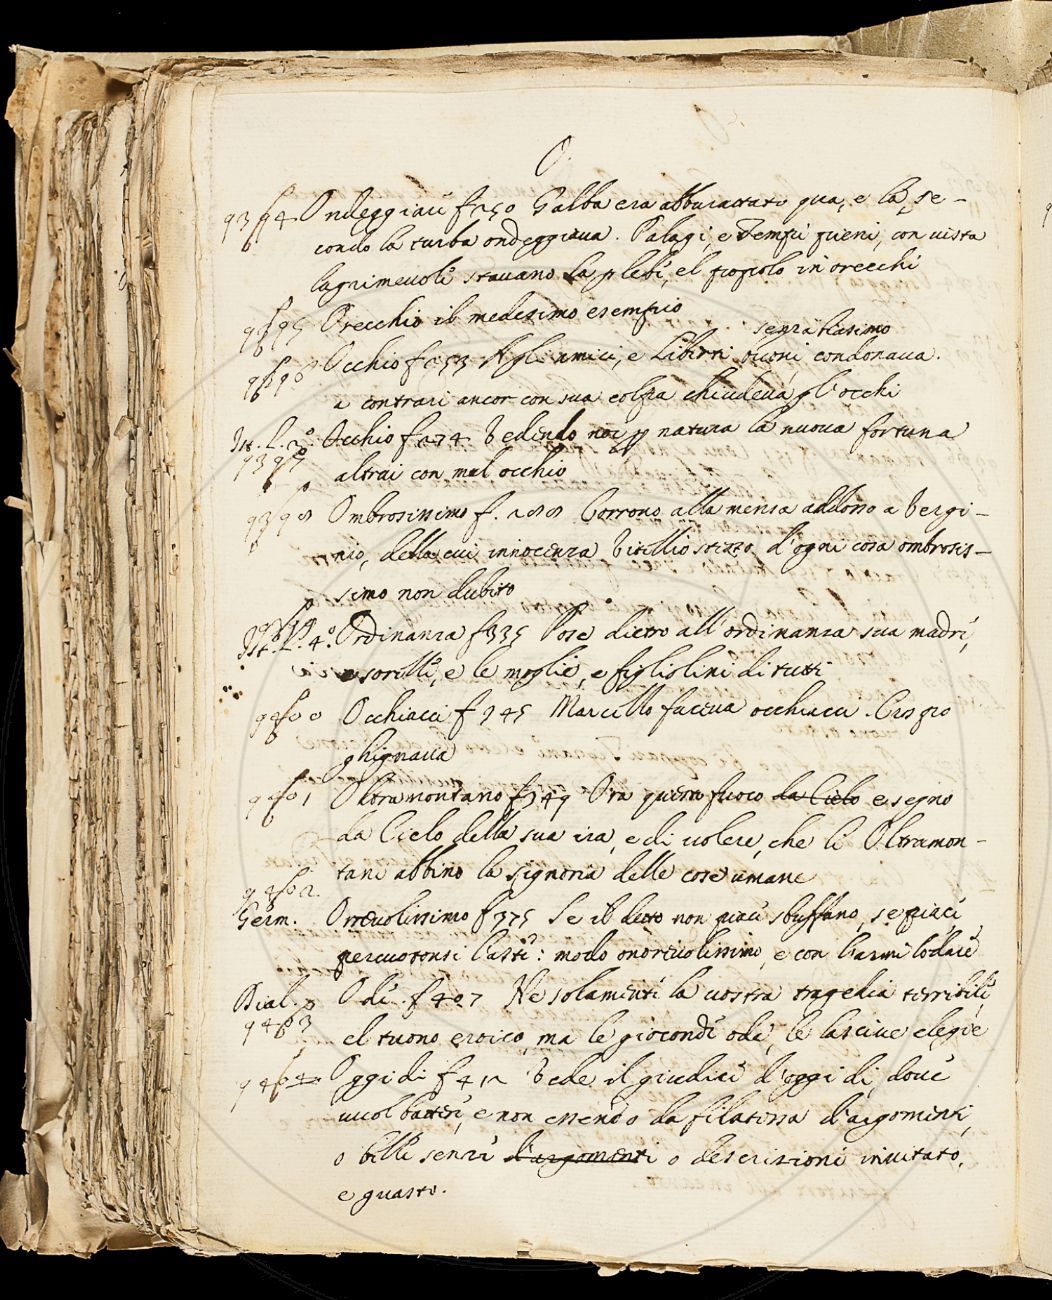 O.
Ondeggiare f 250 Galba era abburattato qua, e la, se-
condo la turba ondeggiava. Palagi, e Tempii pieni, con vista
lagrimevole stavano la plebe, el popolo in orecchi
Orecchio il medesimo esempio
segretissimo
Occhio f 253 Agli amici, e Liberti buoni condonava.
a contrari ancor con sua colpa chiudeva gl'occhi
Ist. L. 2º. Occhio f 274 Vedendo noi p natura la nuova fortuna
altrui con mal occhio
Ombrosissimo f. 288 Corrono alla mensa addosso a Vergi-
nio, della cui innocenza Vitellio stesso d'ogni cosa ombrosis-
simo non dubitò
Ist. L. 4º. Ordinanza f 335 Pose dietro all'ordinanza sua madre,
e sorelle, e le moglie, e figliolini di tutti
Occhiacci f 345 Marcello faceva occhiacci. Crispo
ghignava
Oltramontano f 349 Ora questo fuoco da Cielo e segno
da Cielo della sua ira, e di volere, che li Oltramon-
tani abbino la signoria delle cose umane
Germ. Orrevolissimo f 375 Se il detto non piace sbuffano, se piace
percuotonsi l'aste: modo onorevolissimo, e con l'armi lodare
Dial. p Ode. f 407 Ne solamente la vostra tragedia terribile,
el tuono eroico, ma le gioconde ode, le lascive elegie
Oggi di f 412 Vede il giudice d'oggi di, dove
vuol battere, e non essendo da filatessa d'argomenti,
o belle sensi d'argomenti o descrizioni invitato,
e guasto.